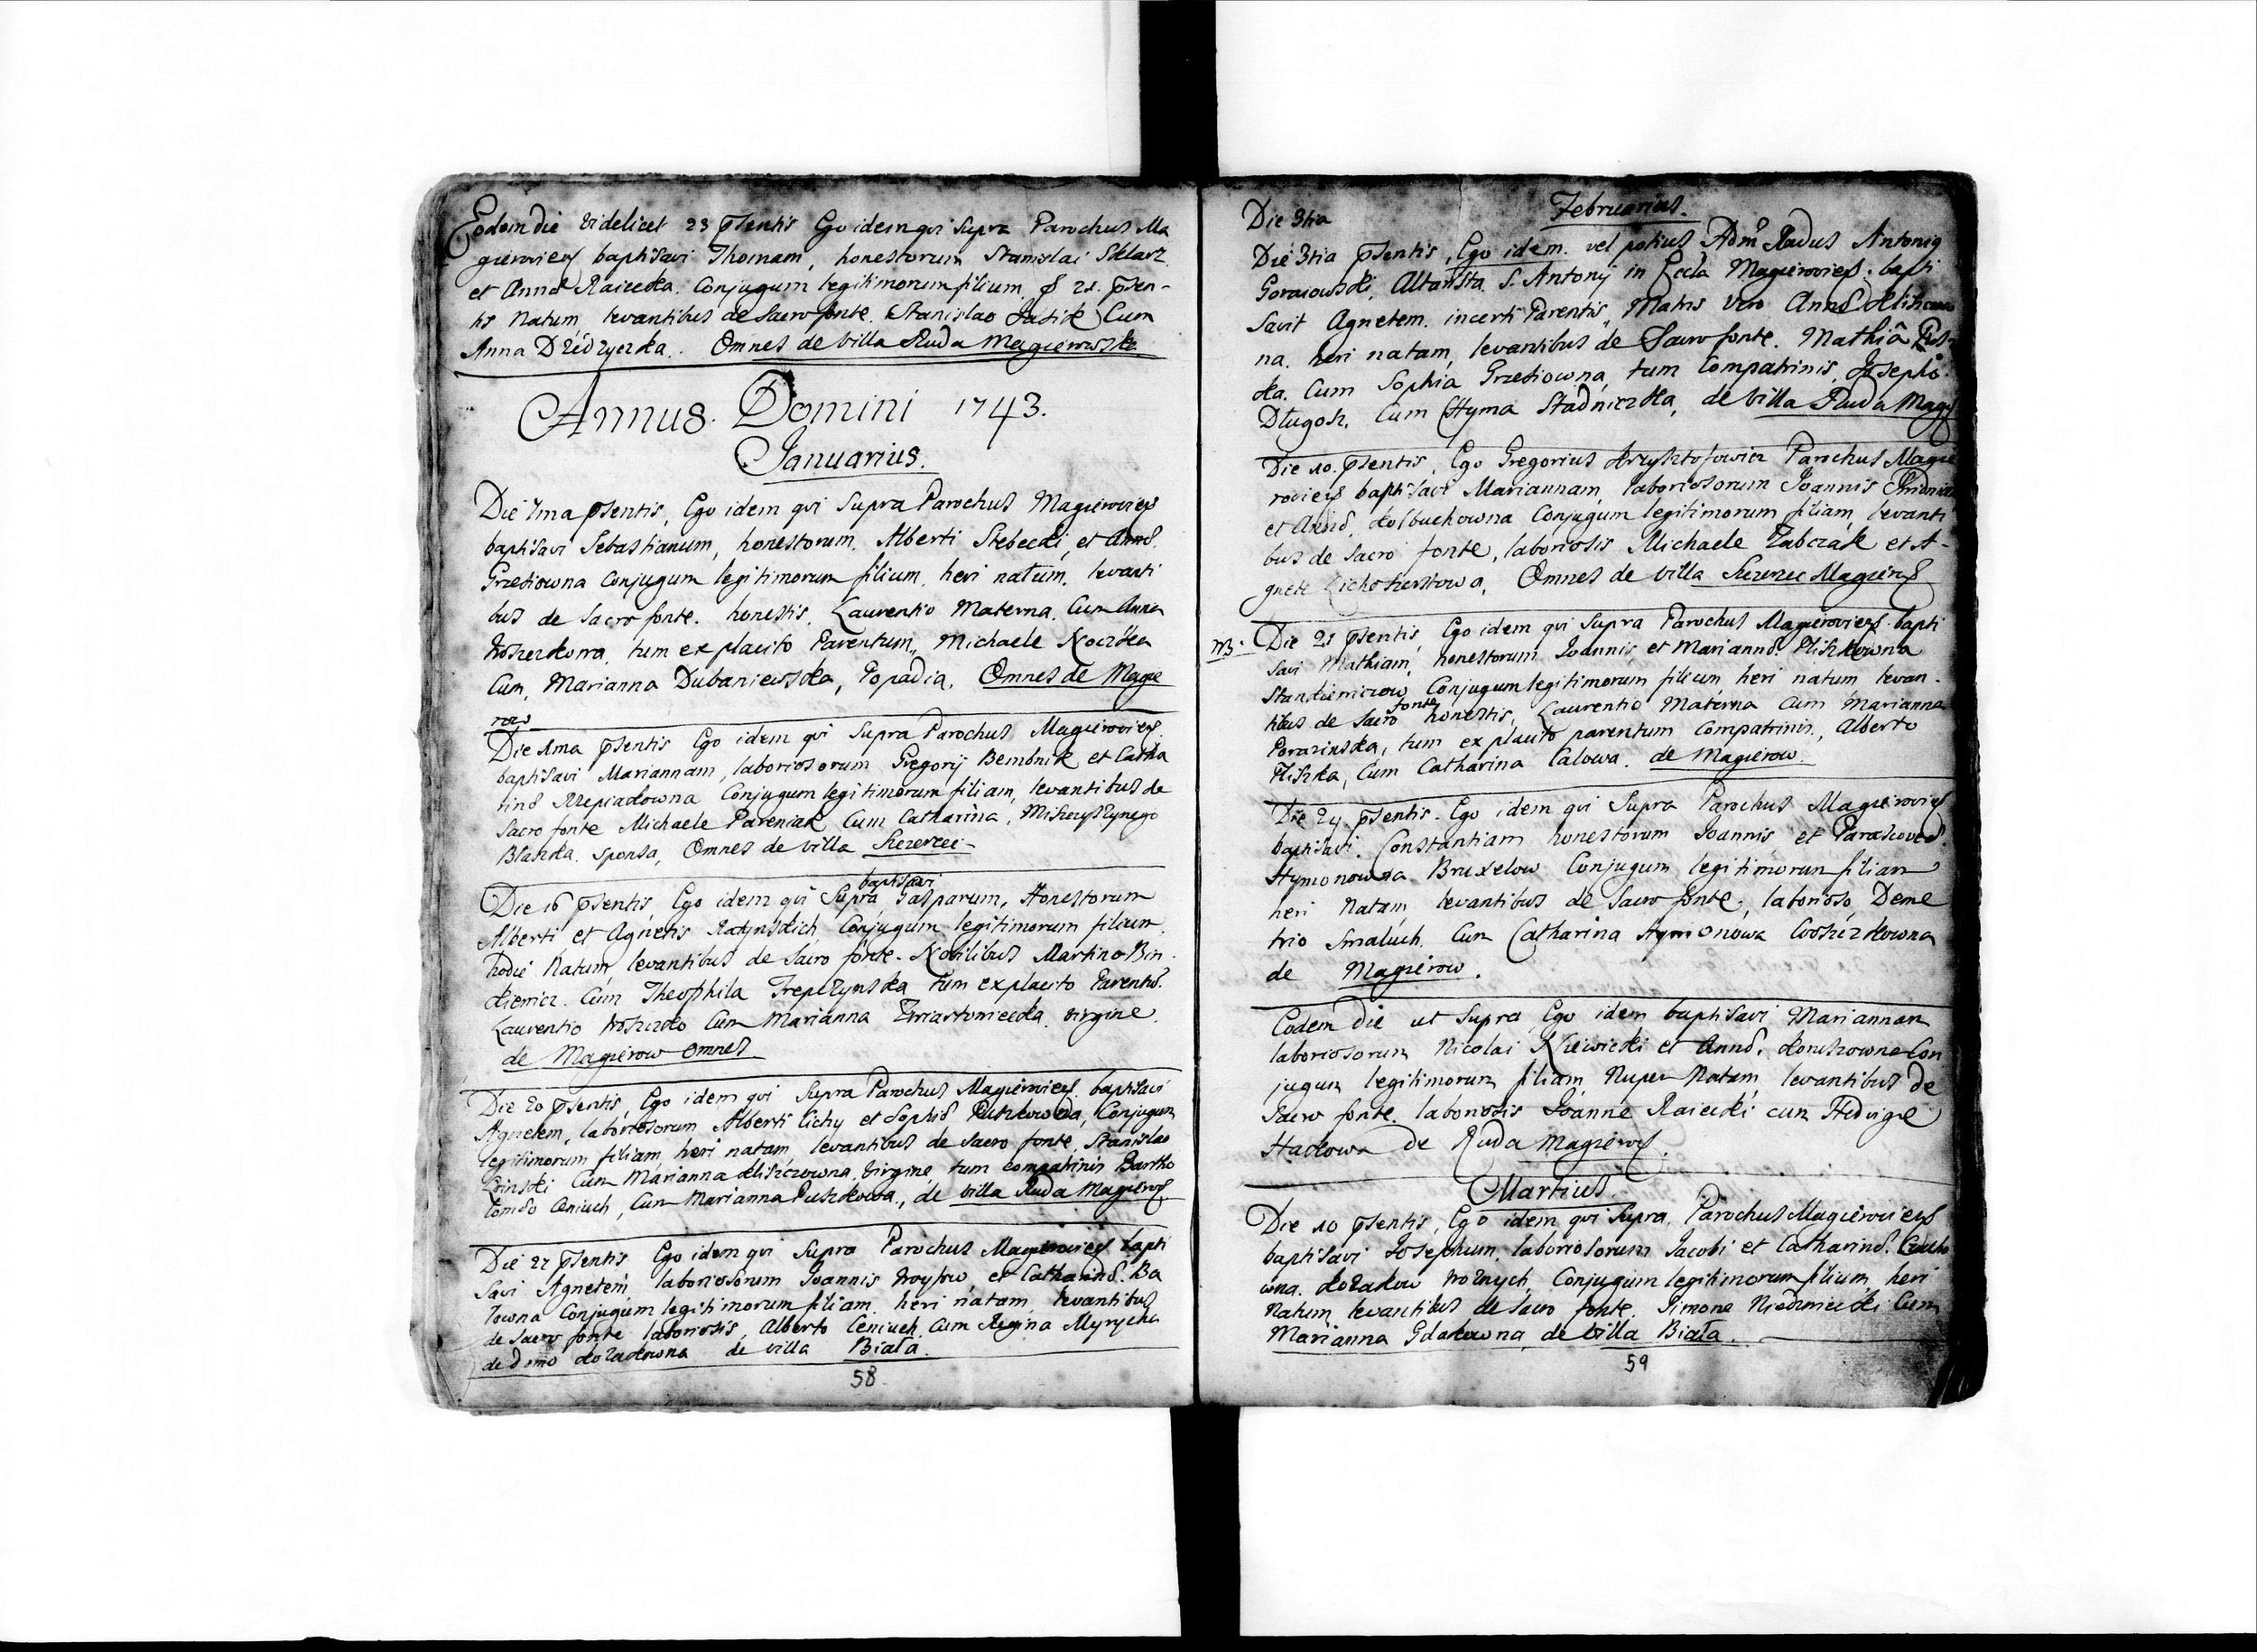 Eodem die videlicet 23 pſentis Ego idem qui supra Parochus Ma
gieroviens baptisavi Thomam, honestorum Stanislai Sklarz
et Annæ Raiecka. Conjugum legitimorum filium, 21. pſen-
tis Natum, levantibus de Sacro fonte. Stanislao Jasik Cum
Anna Dziedzyczka. Omnes de villa Ruda Magierowska
Annus. Domini 1743.
Januarius.
Die 1ma pſentis, Ego idem qui Supra Parochus Magieroviens
baptisavi Sebastianum, honestorum. Alberti Stebecki, et Annæ.
Grzebiowna Conjugum legitimorum filium, heri natum. levanti
bus de Sacro fonte. honestis, Laurentio Materna. Cum Anna
tum ex placito Parentum, Michaele Noczka
Cum, Marianna Dubaniewska, Popadia. Omnes de Magie
row
Die 1ma pſentis Ego idem qui Supra Parochus Magieroviens.
baptisavi Mariannam, laboriosorum Gregorij Bembnik et Catha
rinæ Rzepiakowna Conjugum legitimorum filiam, levantibus de
Sacro fonte Michaele Pareniak Cum Catharina,
Blaszka. sponsa, Omnes de villa Szczerzec-
baptisavi
Die 16 pſentis, Ego idem qui Supra Gasparum, Honestorum
Alberti et Agnetis Ratynskich Conjugum legitimorum filium.
hodie Natum levantibus de Sacro fonte. Nobilibus Martino Bin
kiewicz. Cum Theophila Trepczynska tum explacito Parentū.
Laurentio Woszczko Cum Marianna virgine.
de Magierow omnes
Die 20 pſentis, Ego idem qui Supra Parochus Magieroviens. baptisavi
Agnetem, laboriosorum Alberti Cichy et Sophiæ Puszkowna, Conjugum
legitimorum filiam heri natam levantibus de Sacro fonte, Stanislao
Cum Marianna Kliszczowna, Virgine, tum compatrinis Bartho
lomæo Ceniuch, Cum Marianna Puszkowa, de villa Ruda Magierows
Die 27 pſentis Ego idem qui Supra Parochus Magieroviens bapti
savi Agnetem laboriosorum Joannis Woytow, et Catharinæ. Ba
lowna Conjugum legitimorum filiam. heri natam, levantibus
de Sacro fonte laboriosis, Alberto Ceniuch. Cum Regina Myrycha
de domo Kozakowna de villa Biała.
58
Februarius.
Die 3tia
Die 3tia pſentis, Ego idem. vel potius Admo Rndus Antonius
Goraiowski, Altarista S. Antonij in Eccla Magieroviens. bapti
savit Agnetem. incerti Parentis, Matris vero Annæ
na. heri natam, levantibus de Sacro fonte. Mathia
ka. Cum Sophia Grzebiowna, tum Compatrinis. Josepho.
Długosz, Cum Hyma Stadniczka, de villa Ruda Magi
Die 10. pſentis, Ego Gregorius Krzysztofowicz Parochus Magie
roviens baptisavi Mariannam, laboriosorum Joannis
et Annæ. Kolbuchowna Conjugum legitimorum filiam, levanti
bus de Sacro fonte, laboriosis Michaele Zabczak et A-
gnete Omnes de villa Szczerzec Magierows
NB. Die 21 pſentis, Ego idem qui Supra Parochus Magieroviens. bapti
savi Mathiam, honestorum Joannis, et Mariannæ. Pliszkowna
Stankiewiczow Conjugum legitimorum filium heri natum levan-
tibus de Sacro fonte honestis, Laurentio Materna Cum Marianna
Porazinska, tum ex placito parentum Compatrinis, Alberto
Pliszka, Cum Catharina Calowa. de Magierow.
Die 24 pſentis. Ego idem qui Supra Parochus Magieroviens
baptisavi. Constantiam honestorum Joannis, et Parascoveæ.
Hymonowna Bruxelow Conjugum legitimorum filiam
heri Natam, levantibus de Sacro fonte, laborioso, Deme
trio Smaluch. Cum Catharina Hymonowa Woszczkowna
de Magierow.
Eodem die ut Supra Ego idem baptisavi Mariannam
laboriosorum Nicolai et Annæ. Koruszowna Con
jugum legitimorum filiam Nuper Natam levantibus de
Sacro fonte. laboriosis Joanne Raiecki cum Hedvige
Hackowa de Ruda Magierows.
Martius.
Die 10 pſentis, Ego idem qui Supra. Parochus Magieroviens
baptisavi Josephum, laboriosorum Jacobi et Catharinæ.
wna. Kozakow Woznych Conjugum legitimorum filium heri
Natum, levantibus de Sacro fonte, Simone Niedzwiecki Cum
Marianna Gdakowna, de villa Biała.
59